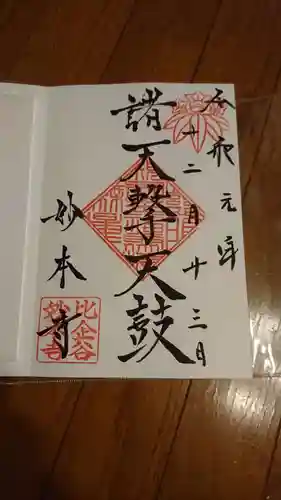 令和元年
十二月十三日
諸天撃天鼓
妙本寺
比企谷
妙本寺